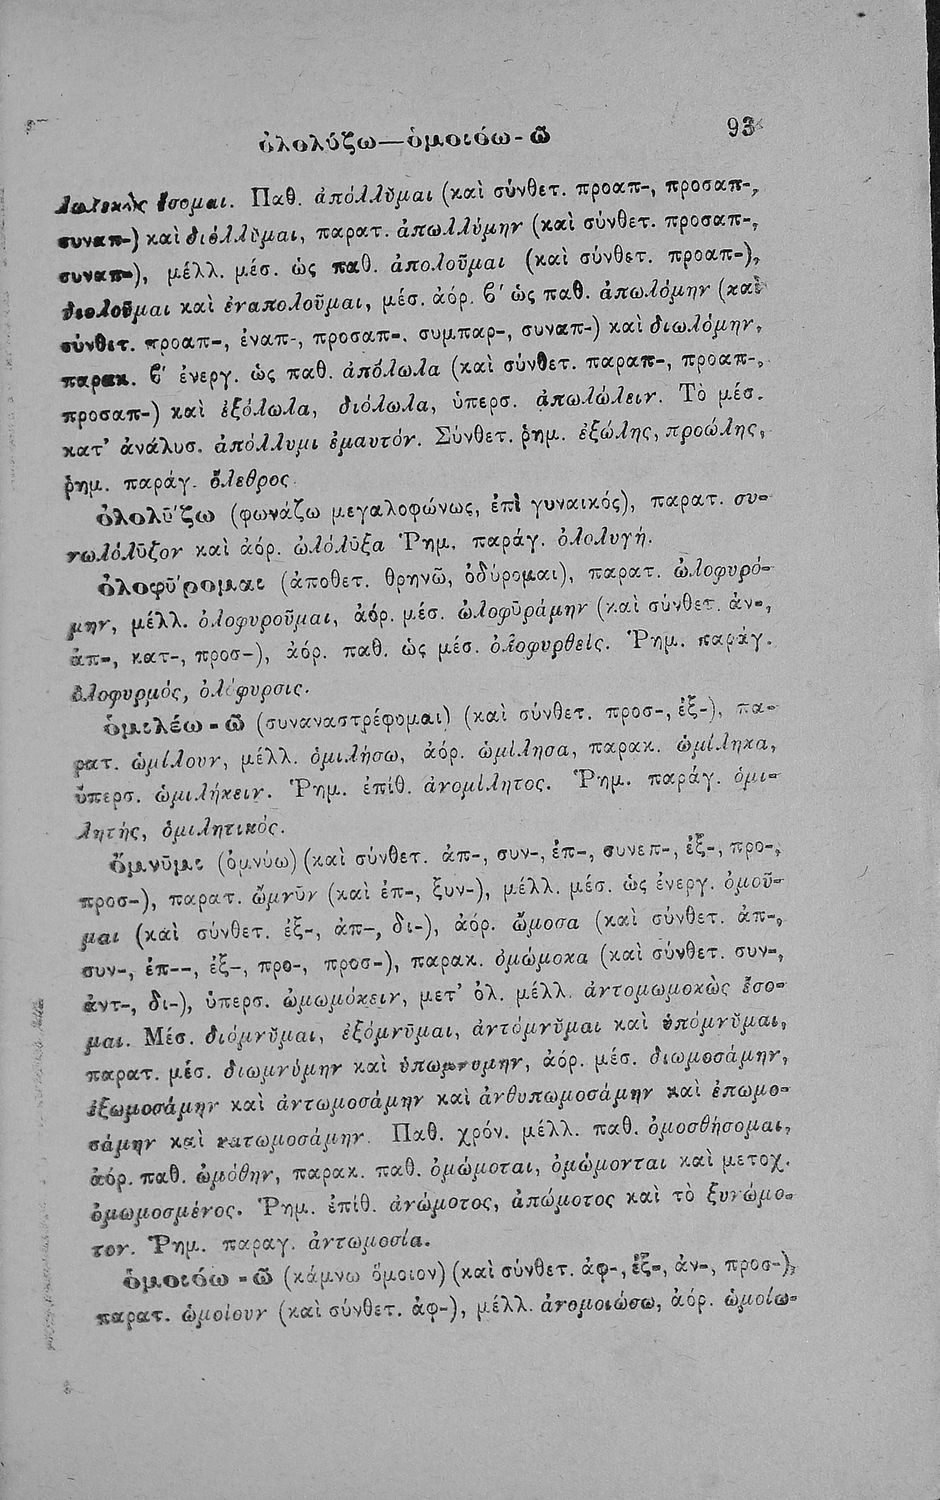 ὀλολύζω—ὁμοιόω-ῶ 93
λωλεκὼς ἔσομαι. Παθ. ἀπόλλῠμαι (καὶ σύνθετ. προαπ-, προσαπ-,
συναπ-) καὶ διόλλῠμαι, παρατ. ἀπωλλύμην (καὶ σύνθετ. προσαπ-,
συναπ-), μέλλ. μέσ. ὡς παθ. ἀπολοῦμαι (καὶ σύνθετ. προαπ-),
διολοῦμαι καὶ ἐναπολοῦμαι, μέσ. ἀόρ. ϐʹ ὡς παθ. ἀπωλόμην (καὶ
σύνθετ. προαπ-, ἐναπ-, προσαπ-, συμπαρ-, συναπ-) καὶ διωλόμην,
παρακ. ϐʹ ἐνεργ. ὡς παθ. ἀπόλωλα (καὶ σύνθετ. παραπ-, προαπ-,
προσαπ-) καὶ ἐξόλωλα, διόλωλα, ὑπερσ. ἀπωλώλειν. Τὸ μέσ.
κατ' ἀνάλυσ. ἀπόλλυμι ἐμαυτόν. Σύνθετ. ῥημ. ἐξώλης, προώλης,
ῥημ. παράγ. ὄλεθρος.
ὀλολῡ́ζω (φωνάζω μεγαλοφώνως, ἐπὶ γυναικός), παρατ. συ-
νωλόλῡζον καὶ ἀόρ. ὠλόλῡξα Ῥημ. παράγ. ὀλολυγή.
ὀλοφῡ́ρομαι (ἀποθετ. θρηνῶ, ὀδύρομαι), παρατ. ὠλοφυρό-
μην, μέλλ. ὀλοφυροῦμαι, ἀόρ. μέσ. ὠλοφῡράμην (καὶ σύνθετ. ἀν-,
ἀπ-, κατ-, προσ-), ἀόρ. παθ. ὡς μέσ. ὀλοφυρθείς. Ῥημ. παράγ.
ὀλοφυρμός, ὀλόφυρσις.
ὁμιλέω-ῶ (συναναστρέφομαι) (καὶ σύνθετ. προσ-, ἐξ-), πα-
ρατ. ὡμίλουν, μέλλ. ὁμιλήσω, ἀόρ. ὡμίλησα, παρακ. ὡμίληκα,
ὑπερσ. ὡμιλήκειν. Ῥημ. ἐπίθ. ἀνομίλητος. Ῥημ. παράγ. ὁμι-
λητής, ὁμιλητικός.
ὄμνῡμι (ὀμνύω) (καὶ σύνθετ. ἀπ-, συν-, ἐπ-, συνεπ-, ἐξ-, προ-,
προσ-), παρατ. ὤμνῡν (καὶ ἐπ-, ξυν-), μέλλ. μέσ. ὡς ἐνεργ. ὀμοῦ-
μαι (καὶ σύνθετ. ἐξ-, ἀπ-, δι-), ἀόρ. ὤμοσα (καὶ σύνθετ. ἀπ-,
συν-, ἐπ--, ἐξ-, προ-, προσ-), παρακ. ὀμώμοκα (καὶ σύνθετ. συν-,
ἀντ-, δι-), ὑπερσ. ὠμωμόκειν, μετ' ὀλ. μέλλ. ἀντομωμοκὼς ἔσο-
μαι. Μέσ. διόμνῠμαι, ἐξόμνῠμαι, ἀντόμνῠμαι καὶ ὑπόμνῠμαι,
παρατ. μέσ. διωμνύμην καὶ ὑπωμνυμην, ἀόρ. μέσ. διωμοσάμην,
ἐξωμοσάμην καὶ ἀντωμοσάμην καὶ ἀνθυπωμοσάμην καὶ ἐπωμο-
σάμην καὶ κατωμοσάμην. Παθ. χρόν. μέλλ. παθ. ὀμοσθήσομαι,
ἀόρ. παθ. ὠμόθην, παρακ. παθ. ὀμώμοται, ὀμώμονται καὶ μετοχ.
ὀμωμοσμένος. Ῥημ. ἐπίθ. ἀνώμοτος, ἀπώμοτος καὶ τὸ ξυνώμο-
τον. Ῥημ. παραγ. ἀντωμοσία.
ὁμοιόω-ῶ (κάμνω ὅμοιον) (καὶ σύνθετ. ἀφ-, ἐξ-, ἀν-, προσ-),
παρατ. ὡμοίουν (καὶ σύνθετ. ἀφ-), μέλλ. ἀνομοιώσω, ἀόρ. ὡμοίω-